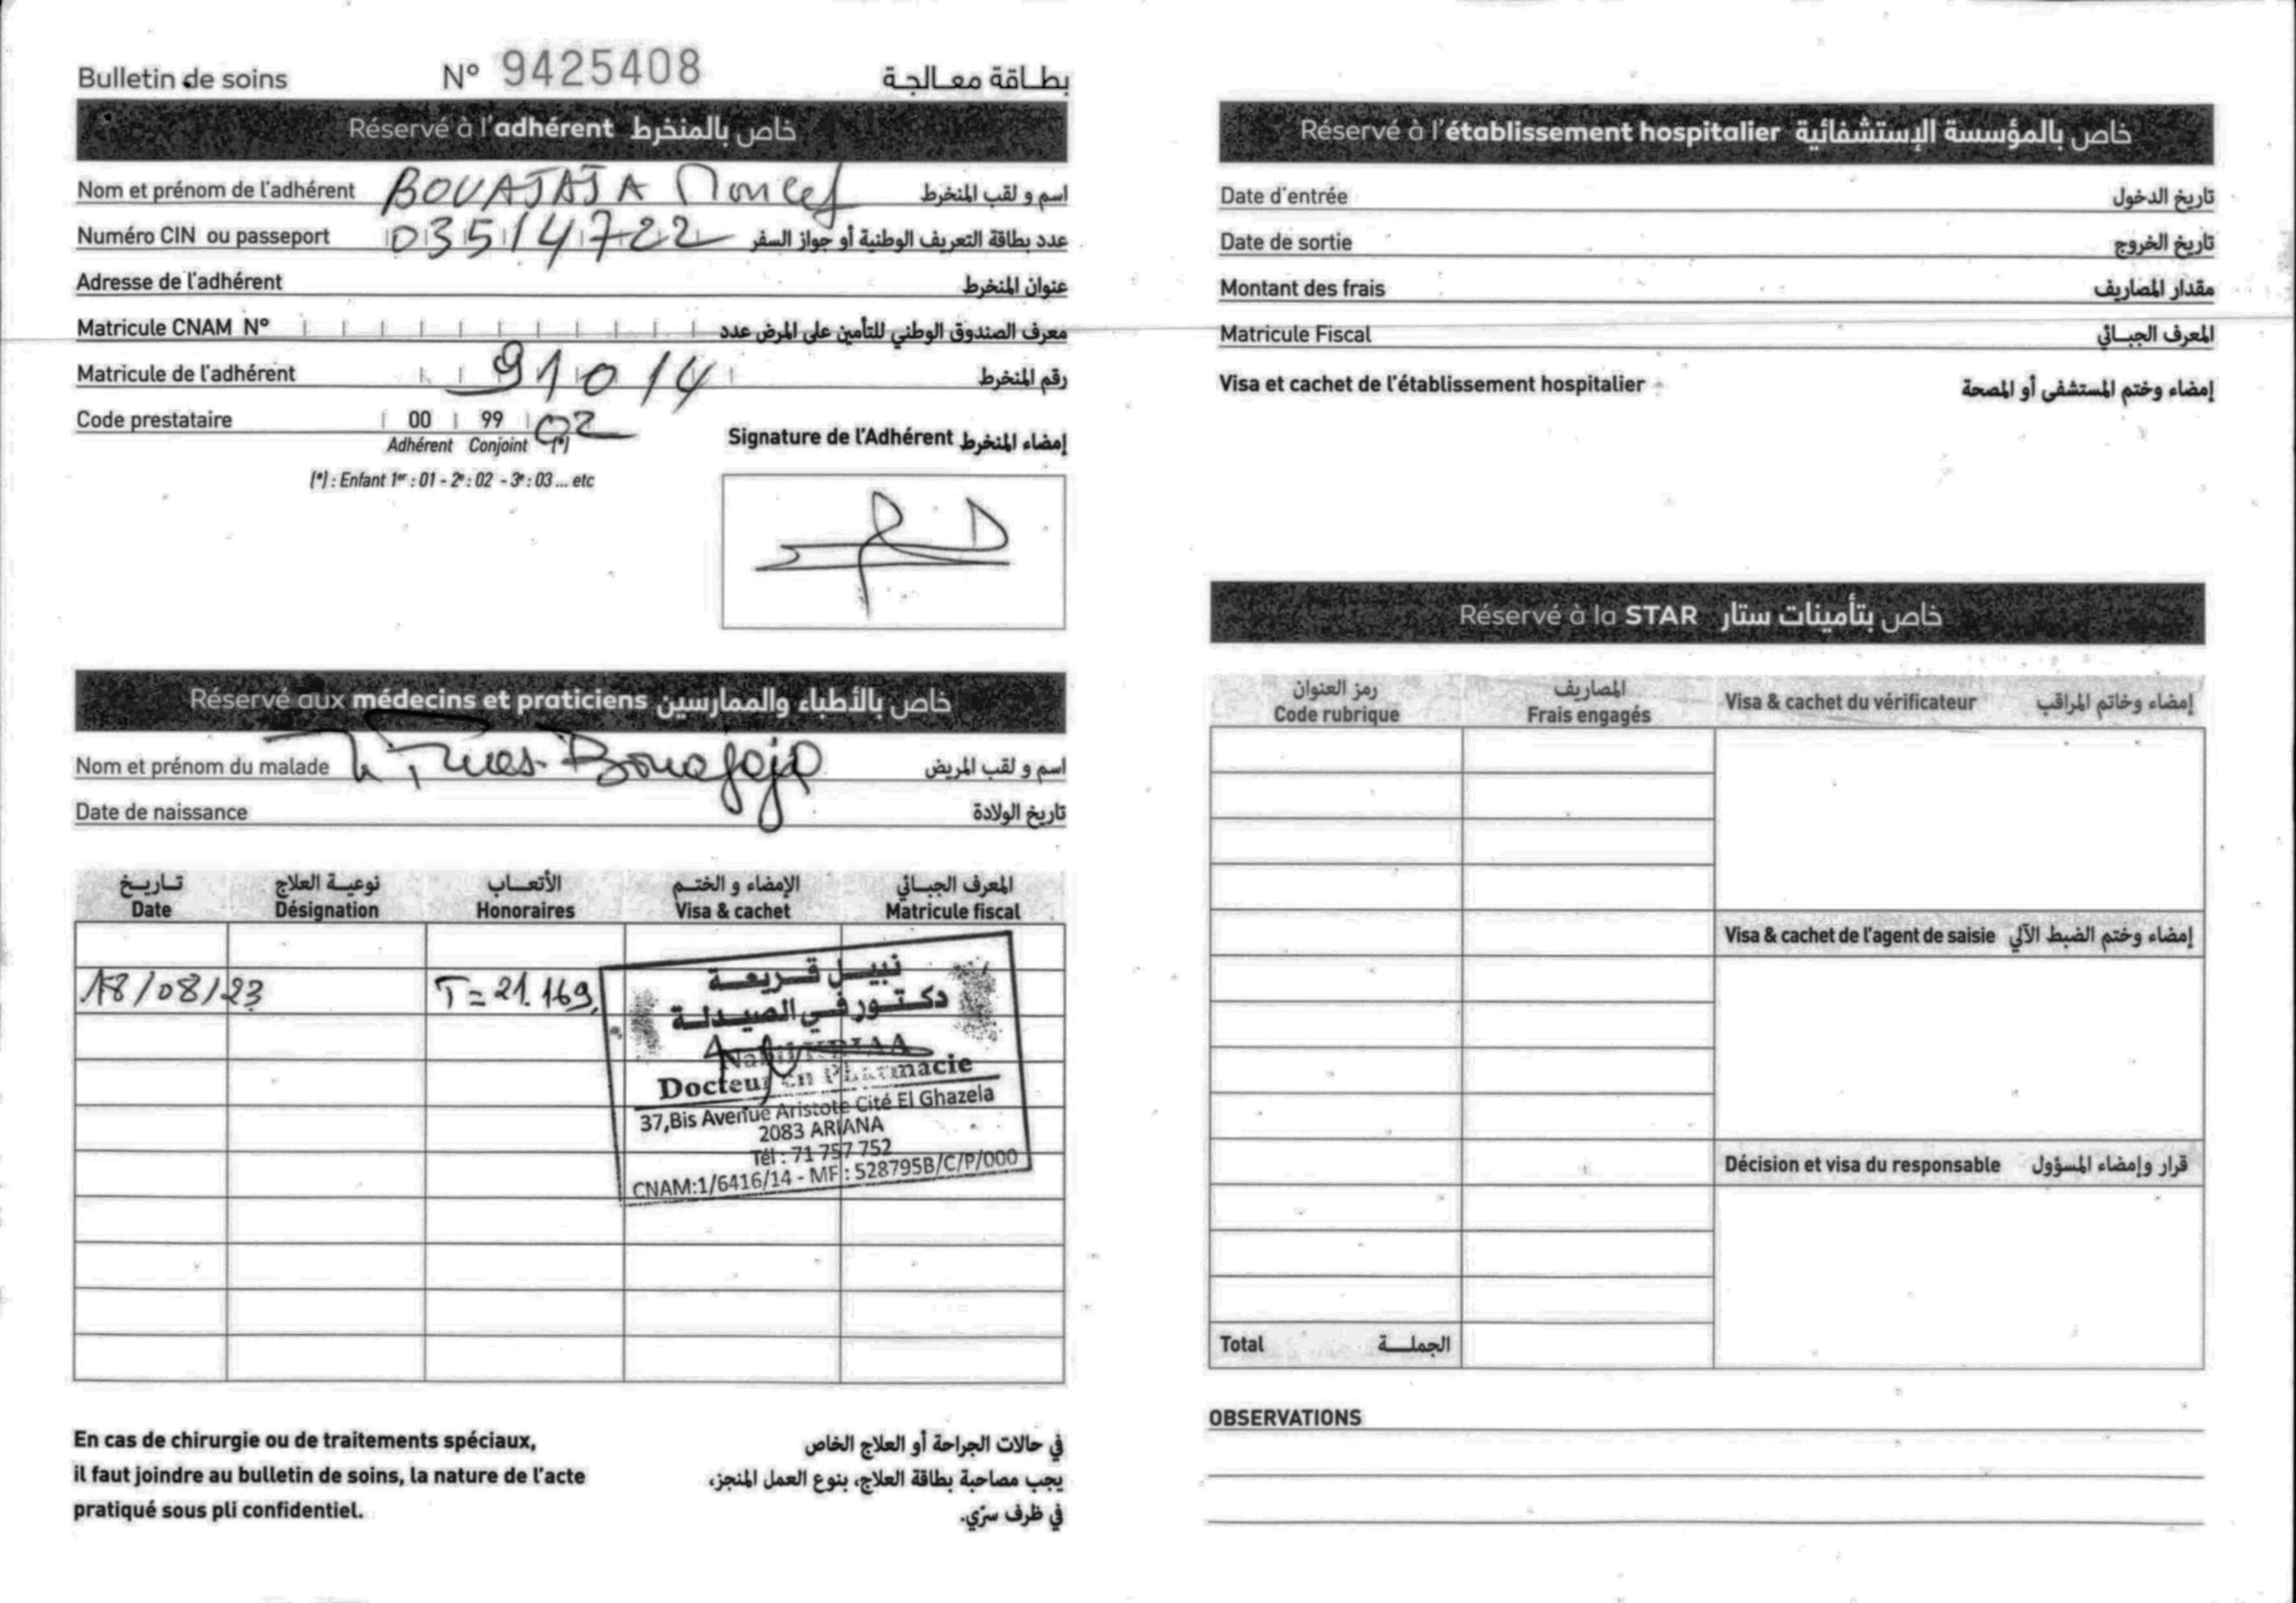 Bulletin de soins N° 9425408 بطاقة معالجة
Réservé à l'adhérent خاص بالمنخرط
Nom et prénom de l'adhérent BOUAJAJA Moncef اسم و لقب المنخرط
Numéro CIN ou passeport 03514722 عدد بطاقة التعريف الوطنية أو جواز السفر
Adresse de l'adhérent عنوان المنخرط
Matricule CNAM N° معرف الصندوق الوطني للتأمين على المرض عدد
Matricule de l'adhérent 91014 رقم المنخرط
Code prestataire 00 99 02
Adhérent Conjoint (*)
(*) : Enfant 1er : 01 - 2e : 02 - 3e : 03 ... etc
Signature de l'Adhérent إمضاء المنخرط
Réservé aux médecins et praticiens خاص بالأطباء والممارسين
Nom et prénom du malade Bouajaja اسم و لقب المريض
Date de naissance تاريخ الولادة
تاريخ نوعية العلاج الأتعاب الإمضاء و الختم المعرف الجبائي
Date Désignation Honoraires Visa & cachet Matricule fiscal
18/08/23 T = 21.169
نبيل قريعة
دكتور في الصيدلة
Nabil KRIAA
Docteur en Pharmacie
37,Bis Avenue Aristote Cité El Ghazela
2083 ARIANA
Tél : 71 757 752
CNAM:1/6416/14 - MF : 528795B/C/P/000
En cas de chirurgie ou de traitements spéciaux,
il faut joindre au bulletin de soins, la nature de l'acte
pratiqué sous pli confidentiel.
في حالات الجراحة أو العلاج الخاص
يجب مصاحبة بطاقة العلاج، بنوع العمل المنجز،
في ظرف سرّي.
Réservé à l'établissement hospitalier خاص بالمؤسسة الإستشفائية
Date d'entrée تاريخ الدخول
Date de sortie تاريخ الخروج
Montant des frais مقدار المصاريف
Matricule Fiscal المعرف الجبائي
Visa et cachet de l'établissement hospitalier إمضاء وختم المستشفى أو المصحة
Réservé à la STAR خاص بتأمينات ستار
رمز العنوان المصاريف
Code rubrique Frais engagés Visa & cachet du vérificateur إمضاء وخاتم المراقب
Visa & cachet de l'agent de saisie إمضاء وختم الضبط الآلي
Décision et visa du responsable قرار وإمضاء المسؤول
Total الجملة
OBSERVATIONS